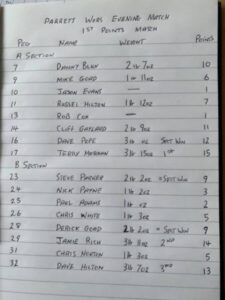 PARRETT WORS EVENING MATCH
1ST POINTS MATCH
PEG NAME WEIGHT POINTS
A SECTION
7 DANNY 2lb 7oz 10
9 MIKE GOAD 1lb 11oz 6
10 JASON EVANS — 1
11 RUSSEL HILTON 1lb 12oz 7
13 ROB COX — 1
14 CLIFF 2lb 9oz 11
16 DAVE POPE 3lb oz SECT WIN 12
17 TERRY MORGAN 3lb 15oz 1ST 15
B SECTION
23 STEVE PARKER 2lb 2oz =SECT WIN 9
24 NICK PAYNE 1lb 2oz 3
25 PAUL ADAMS 1lb oz 2
26 CHRIS WHITE 1lb 3oz 5
28 DEREK GOAD 2lb 2oz =SECT WIN 9
29 JAMIE RICH 3lb 8oz 2ND 14
31 CHRIS NORTON 1lb 3oz 5
32 DAVE HILTON 3lb 7oz 3RD 13